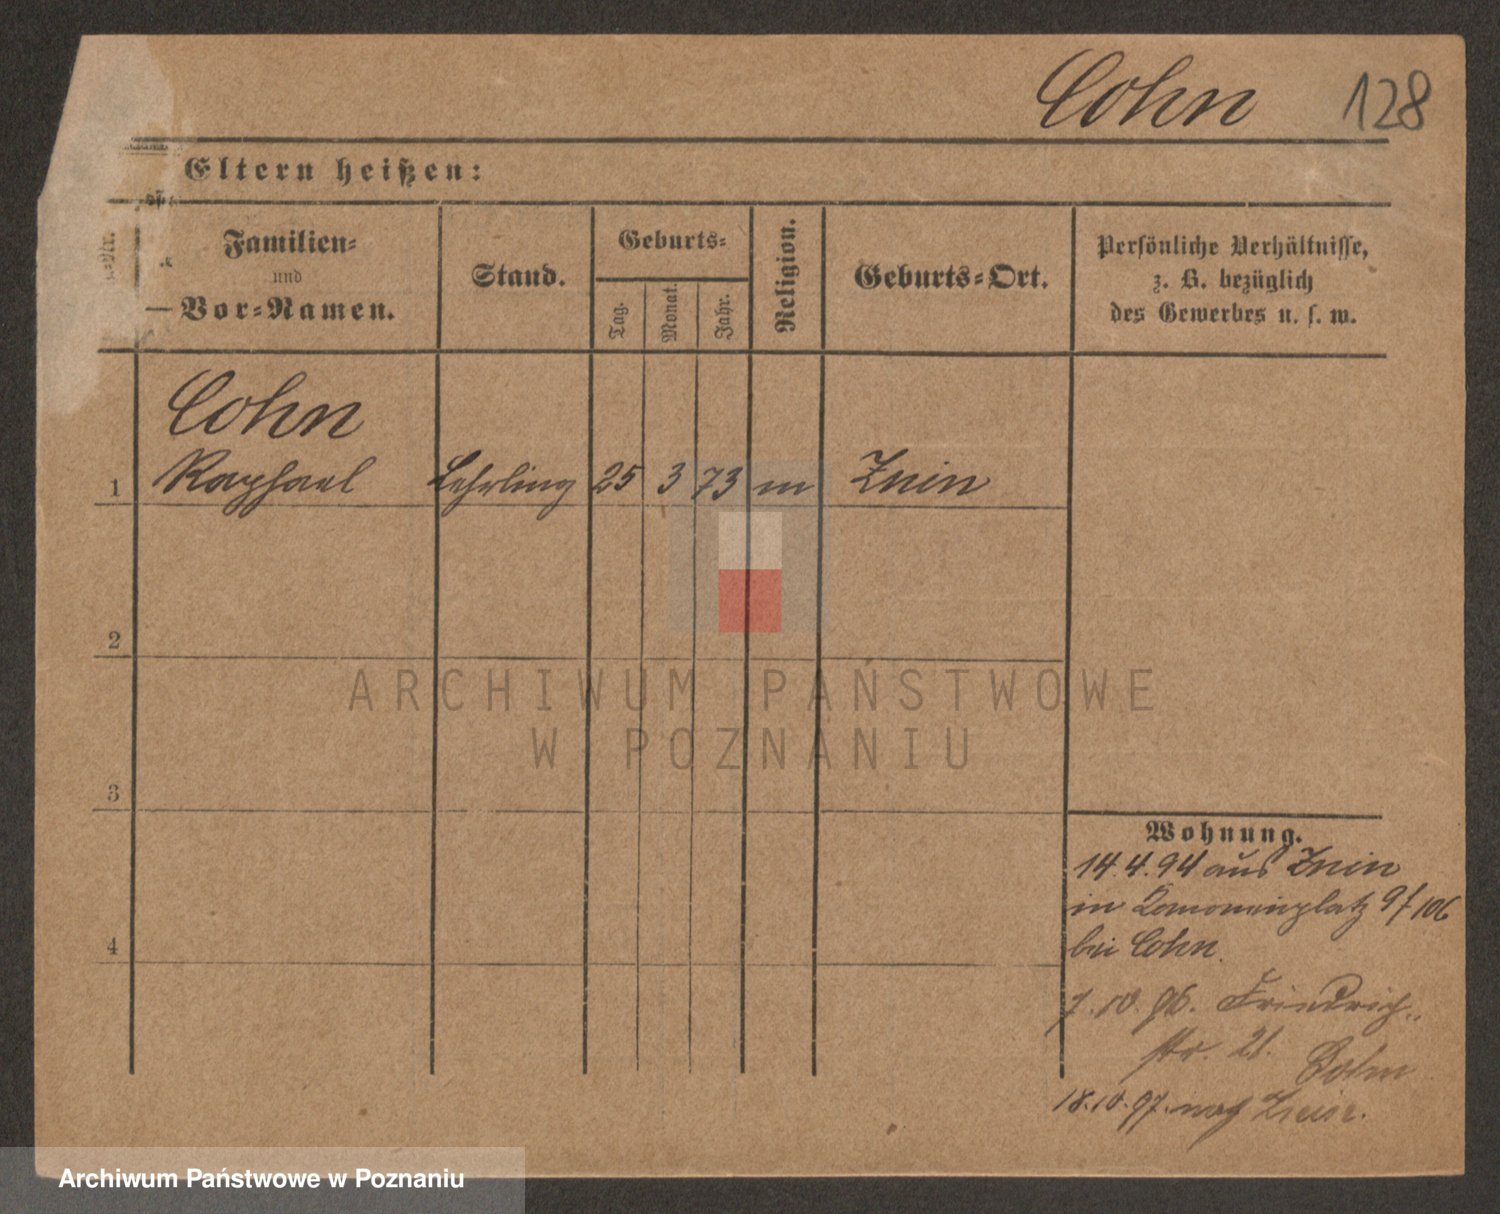 Cohn 128
Eltern heißen:
Familien=
und
Vor=Namen.
Stand.
Geburts=
Tag.
Monat.
Jahr.
Religion.
Geburts=Ort.
Persönliche Verhältnisse,
z. B. bezüglich
des Gewerbes u. s. w.
Cohn
1 Raphael Lehrling 25 3 73 m Znin
2
3
4
Wohnung.
14.4.94 aus Znin
in 9/106
bei Cohn.
7.10.96. Friedrich=
str. 21. Cohn
18.10.97. nach Znin.
ARCHIWUM PAŃSTWOWE
W POZNANIU
Archiwum Państwowe w Poznaniu